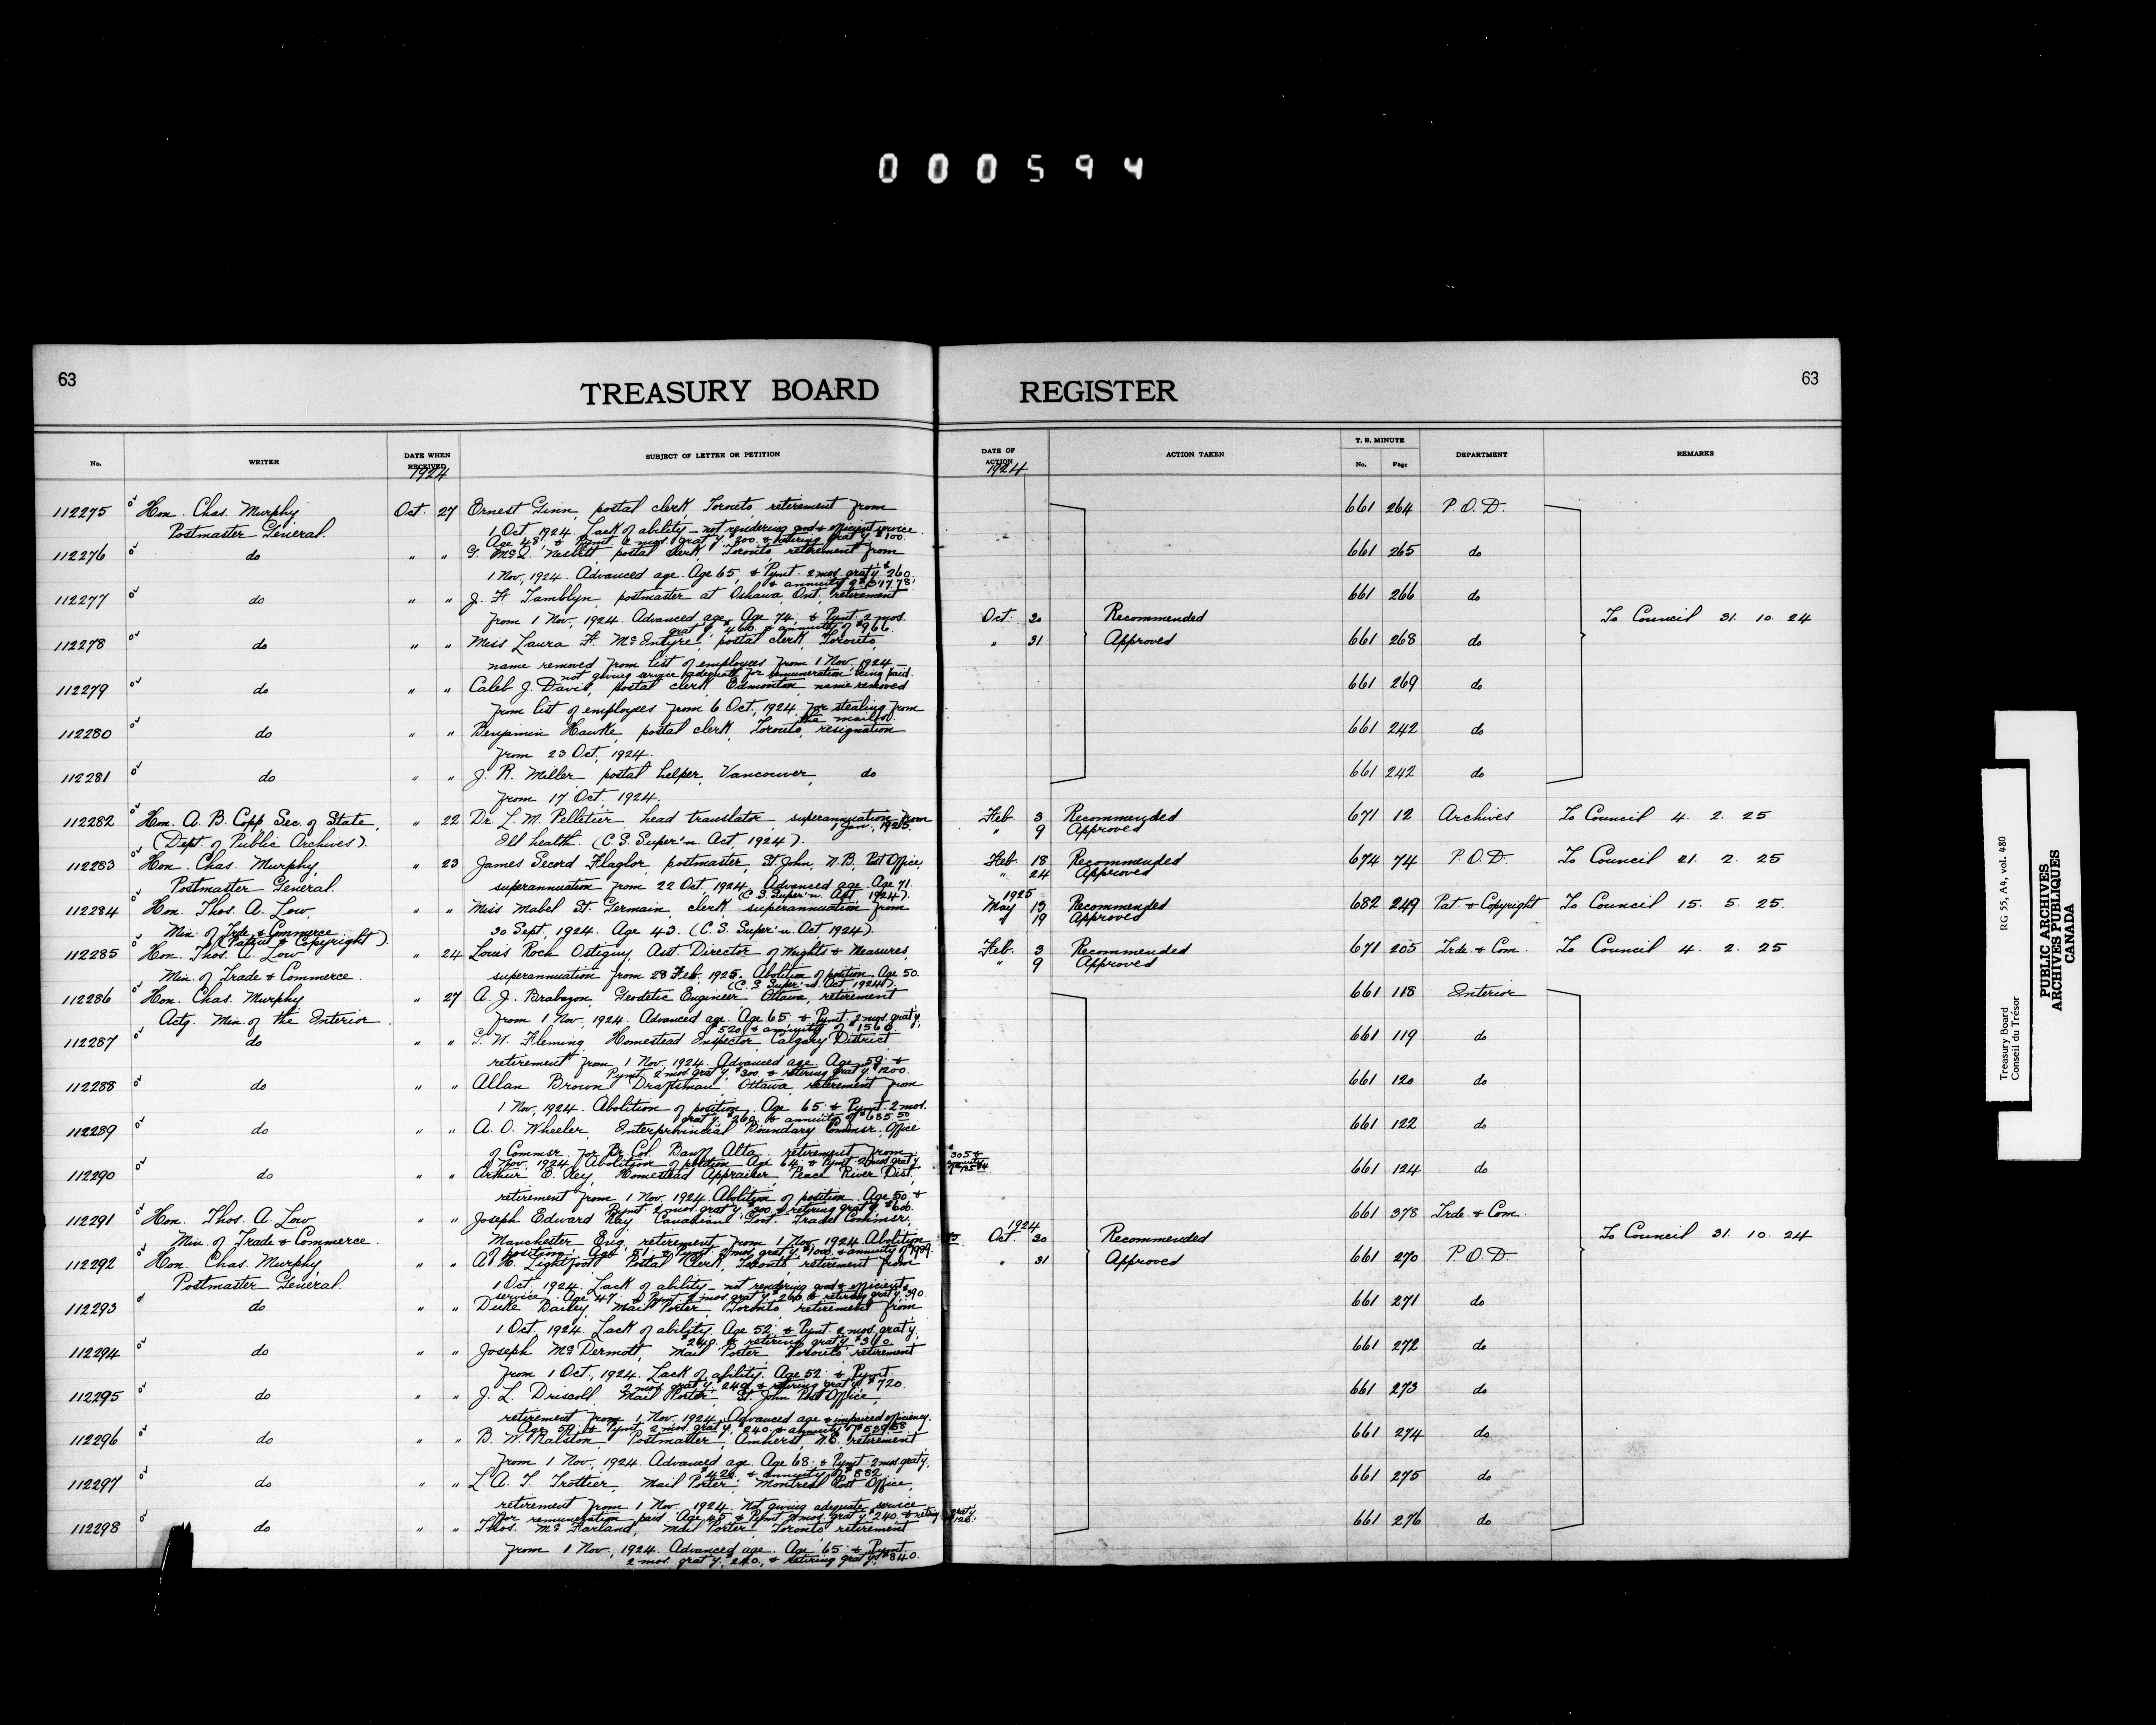 000594
63
TREASURY BOARD REGISTER
63
No. WRITER DATE WHEN RECEIVED SUBJECT OF LETTER OR PETITION DATE OF ACTION ACTION TAKEN T. B. MINUTE No. Page DEPARTMENT REMARKS
1924 1924
112275 Hon. Chas. Murphy Oct. 27 Ernest Ginn, postal clerk, Toronto, retirement from 661 264 P.O.D.
Postmaster General. 1 Oct. 1924. Lack of ability - not rendering good & efficient service
Age 48, & Pymt. 2 mos. grat'y. $200. & retiring grat'y. $100.
112276 do " " G. McD. Nesbitt postal clerk Toronto retirement from 661 265 do
1 Nov., 1924. Advanced age. Age 65, & Pymt. 2 mos. grat'y. $260.
& annuity of $ 17.78.
112277 do " " J. F. Tamblyn, postmaster at Oshawa, Ont., retirement 661 266 do
from 1 Nov., 1924. Advanced age, Age 74, & Pymt. 2 mos. Oct. 30 Recommended To Council 31. 10. 24
grat'y. $466. & annuity of $966.
112278 do " " Miss Laura F. McEntyre, postal clerk, Toronto, " 31 Approved 661 268 do
name removed from list of employees from 1 Nov., 1924 -
not giving service adequate for remuneration being paid.
112279 do " " Caleb J. Davis, postal clerk, Edmonton, name removed 661 269 do
from list of employees from 6 Oct., 1924, for stealing from
the mails.
112280 do " " Benjamin Hawke, postal clerk, Toronto, resignation 661 242 do
from 23 Oct., 1924.
112281 do " " J. R. Miller, postal helper, Vancouver, do 661 242 do
from 17 Oct., 1924.
112282 Hon. A. B. Copp Sec. of State, " 22 Dr. L. M. Pelletier, head translator, superannuation from Feb. 3 Recommended 671 12 Archives To Council 4. 2. 25
1 Jan., 1925. " 9 Approved
(Dept. of Public Archives). Ill health. (C. S. Super'n. Act, 1924).
112283 Hon. Chas. Murphy, " 23 James Secord Flaglor, postmaster, St. John, N.B. Post Office, Feb. 18 Recommended 674 74 P.O.D. To Council 21. 2. 25
" 24 Approved
Postmaster General. superannuation from 22 Oct., 1924. Advanced age. Age 71.
(C. S. Super'n. Act, 1924). 1925
112284 Hon. Thos. A. Low, " " Miss Mabel St. Germain, clerk, superannuation from May 13 Recommended 682 249 Pat. & Copyright To Council 15. 5. 25.
" 19 Approved
Min. of Trde. & Commerce 30 Sept. 1924. Age 43. (C. S. Super'n. Act 1924).
(Patent & Copyright).
112285 Hon. Thos. A. Low " 24 Louis Roch Ostiguy, Asst. Director of Weights & Measures, Feb. 3 Recommended 671 205 Trde. & Com. To Council 4. 2. 25
" 9 Approved
Min. of Trade & Commerce. superannuation from 28 Feb. 1925. Abolition of position. Age 50.
(C. S. Super'n. Act 1924).
112286 Hon. Chas. Murphy " 27 A. J. Brabazon, Geodetic Engineer Ottawa, retirement 661 118 Interior
Actg. Min. of the Interior. from 1 Nov., 1924. Advanced age. Age 65 & Pymt. 2 mos. grat'y.
$520 & annuity of $1560.
112287 do " " Fleming, Homestead Inspector Calgary District 661 119 do
retirement from 1 Nov., 1924. Advanced age. Age 59. &
Pymt. 2 mos. grat'y. $300. & retiring grat'y. $1200.
112288 do " " Allan Brown Draftsman Ottawa retirement from 661 120 do
1 Nov., 1924. Abolition of position. Age 65. & Pymt. 2 mos.
grat'y. $260. & annuity of $685.50
112289 do " " A. O. Wheeler, Interprovincial Boundary Commsr. Office 661 122 do
of Commsr. for Br. Col. Banff Alta. retirement from
1 Nov., 1924. Abolition of position. Age 64. & Pymt. 2 mos. grat'y. $305 & annuity
112290 do " " Arthur E. Key, Homestead Appraiser, Peace River Dist., 661 124 do
retirement from 1 Nov., 1924. Abolition of position. Age 50. &
Pymt. 2 mos. grat'y. $300. & retiring grat'y. $600.
112291 Hon. Thos. A. Low " " Joseph Edward Ray, Canadian Govt. Trade Commsr. 661 378 Trde. & Com.
1924
Min. of Trade & Commerce. Manchester Eng., retirement from 1 Nov. 1924. Abolition Oct. 30 Recommended To Council 31. 10. 24
of position. Age 51. & Pymt. 2 mos. grat'y. $1000. & annuity of
112292 Hon. Chas. Murphy, " " A. H. Lightfoot Postal Clerk, Toronto, retirement from " 31 Approved 661 270 P.O.D.
Postmaster General. 1 Oct. 1924. Lack of ability - not rendering good & efficient
service. Age 47. & Pymt. 2 mos. grat'y. $260. & retiring grat'y. $390.
112293 do " " Duke Dailey Mail Porter Toronto retirement from 661 271 do
1 Oct. 1924. Lack of ability. Age 52. & Pymt. 2 mos. grat'y.
$240. & retiring grat'y.
112294 do " " Joseph McDermott, Mail Porter Toronto, retirement 661 272 do
from 1 Oct., 1924. Lack of ability. Age 52. & Pymt.
2 mos. grat'y. 240. & retiring grat'y. $720.
112295 do " " J. L. Driscoll Mail Porter St. John Post Office, 661 273 do
retirement from 1 Nov. 1924. Advanced age & impaired efficiency.
Age 59. & Pymt. 2 mos. grat'y. $240. & annuity of
112296 do " " B. W. Ralston, Postmaster, Amherst, N.S. retirement 661 274 do
from 1 Nov., 1924. Advanced age. Age 68. & Pymt. 2 mos. grat'y.
$420. & annuity of $882.
112297 do " " L. A. T. Trottier, Mail Porter, Montreal Post Office, 661 275 do
retirement from 1 Nov. 1924. Not giving adequate service
for remuneration paid. Age 45 & Pymt. 2 mos. grat'y. $240. & retiring grat'y. $126.
112298 do " " Thos. McFarland, Mail Porter Toronto retirement 661 276 do
from 1 Nov., 1924. Advanced age. Age 65. & Pymt.
2 mos. grat'y. 240., & retiring grat'y. $840.
Treasury Board RG 55, A4, vol. 480
Conseil du Trésor
PUBLIC ARCHIVES
ARCHIVES PUBLIQUES
CANADA